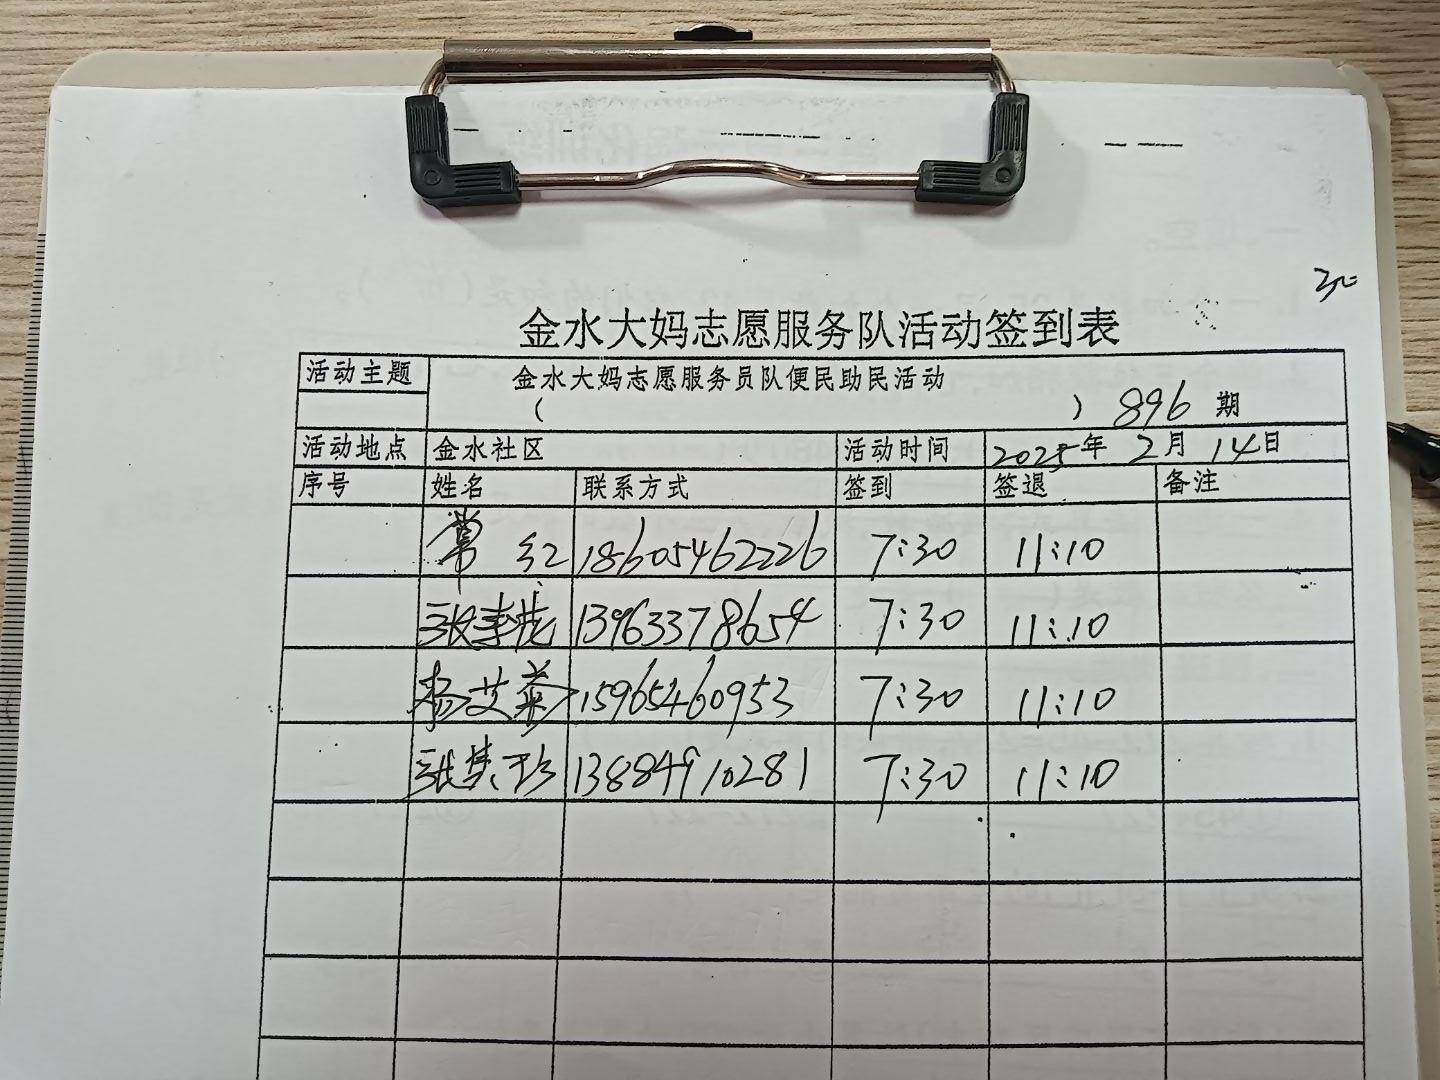 金水大妈志愿服务队活动签到表
活动主题 金水大妈志愿服务员队便民助民活动
( ) 896 期
活动地点 金水社区 活动时间 2025年 2月 14日
序号 姓名 联系方式 签到 签退 备注
常 红 18605462226 7:30 11:10
张 13963378654 7:30 11:10
杨艾菊 15965460953 7:30 11:10
张梦珍 13884910281 7:30 11:10